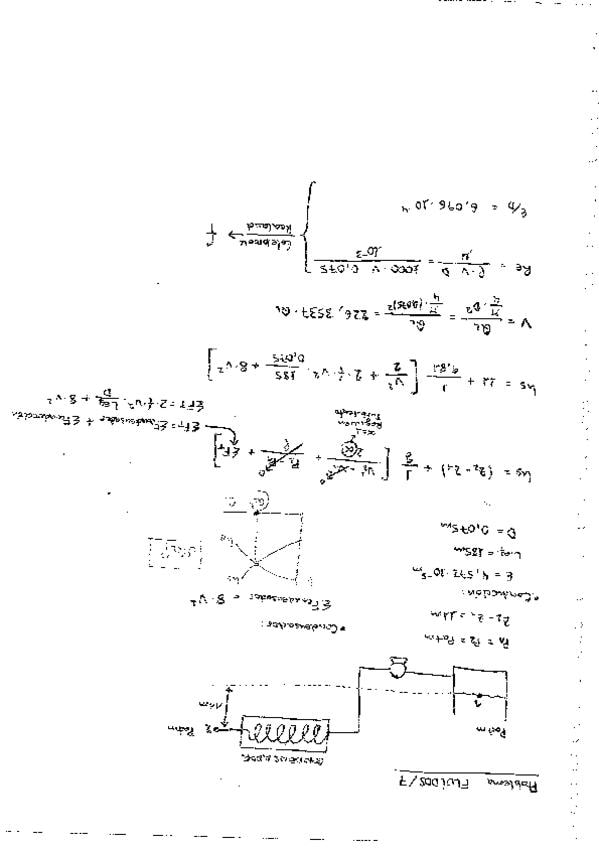 Problema FLUIDOS/7
Patm
CONDENSADOR
2 Patm
11m
1
P₁ = P₂ = Patm
Z₂ - Z₁ = 11m
• Conducción:
ε = 4,572·10⁻⁵ m
Leq = 185m
D = 0,075m
• Condensador:
ΣFcondensador = 8·V²
hs = (Z₂ - Z₁) + 1/g [ (V₂² - V₁²)/2α + (P₂ - P₁)/ρ + ΣF_T ]
α=1
Régimen
Turbulento
ΣF_T = ΣFcondensador + ΣFconducción
ΣF_T = 2·f·V²· Leq/D + 8·V²
hs = 11 + 1/9,81 [ V²/2 + 2·f·V²· 185/0,075 + 8·V² ]
V = Q_L/(π/4·D²) = Q_L/(π/4·(0,075)²) = 226,3537·Q_L
Re = ρ·V·D/μ = 1000·V·0,075/10⁻³
ε/D = 6,096·10⁻⁴
Colebrook
f